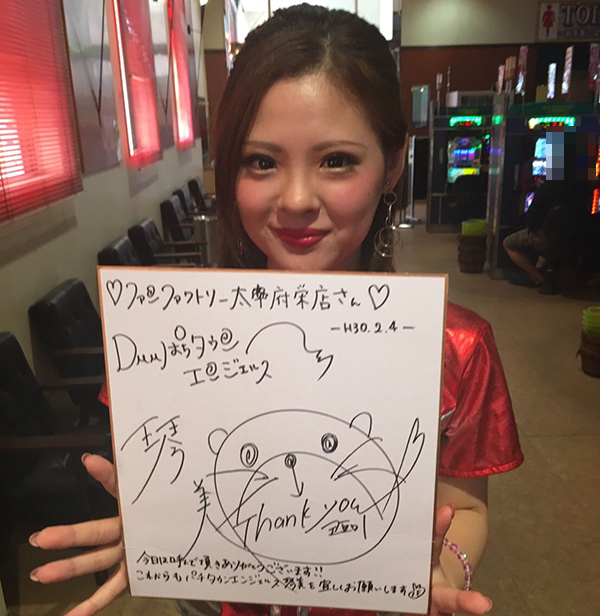 ♡ファ@ンファクトリー太宰府栄店さん♡
-H30.2.4-
エ@ンジェルス
琴美
Thank you
今日は呼んで頂きありがとうございます!!
これからもパチタウンエンジェルス琴美を宜しくお願いします
TOI